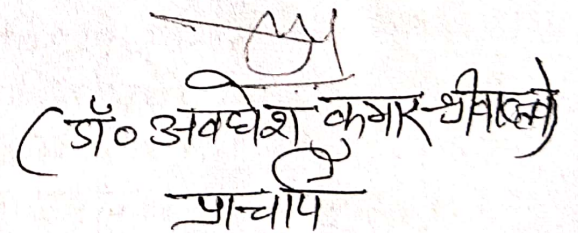 (डॉ० अवधेश कुमार श्रीवास्तव)
प्राचार्य